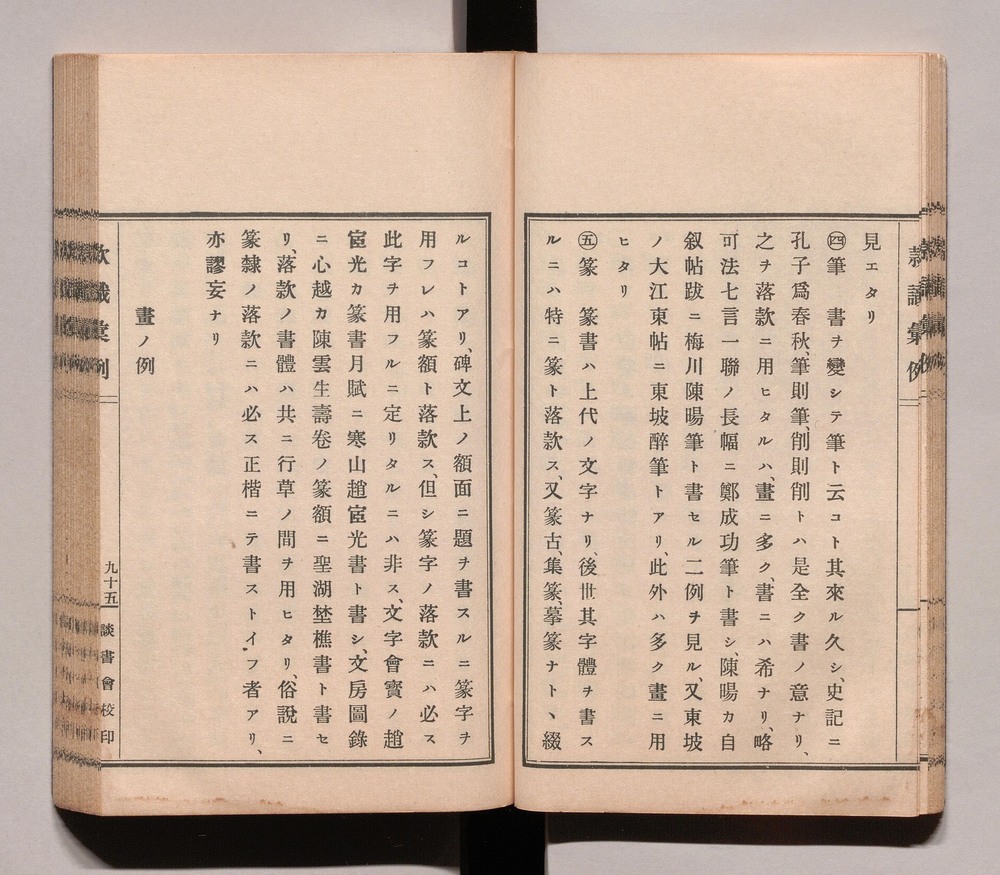 見エタリ
㊃筆　書ヲ變シテ筆ト云コト其來ル久シ、史記ニ
孔子爲春秋、筆則筆、削則削トハ是全ク書ノ意ナリ、
之ヲ落款ニ用ヒタルハ、畫ニ多ク、書ニハ希ナリ、略
可法七言一聯ノ長幅ニ鄭成功筆ト書シ、陳暘カ自
叙帖跋ニ梅川陳暘筆ト書セル二例ヲ見ル、又東坡
ノ大江東帖ニ東坡醉筆トアリ、此外ハ多ク畫ニ用
ヒタリ
㊄篆　篆書ハ上代ノ文字ナリ、後世其字體ヲ書ス
ルニハ特ニ篆ト落款ス、又篆古、集篆、摹篆ナトヽ綴
ルコトアリ、碑文上ノ額面ニ題ヲ書スルニ篆字ヲ
用フレハ篆額ト落款ス、但シ篆字ノ落款ニハ必ス
此字ヲ用フルニ定リタルニハ非ス、文字會寳ノ趙
宧光カ篆書月賦ニ寒山趙宧光書ト書シ、文房圖錄
ニ心越カ陳雲生壽卷ノ篆額ニ聖湖埜樵書ト書セ
リ、落款ノ書體ハ共ニ行草ノ間ヲ用ヒタリ、俗說ニ
篆隸ノ落款ニハ必ス正楷ニテ書ストイフ者アリ、
亦謬妄ナリ
畫ノ例
九十五
談書會校印